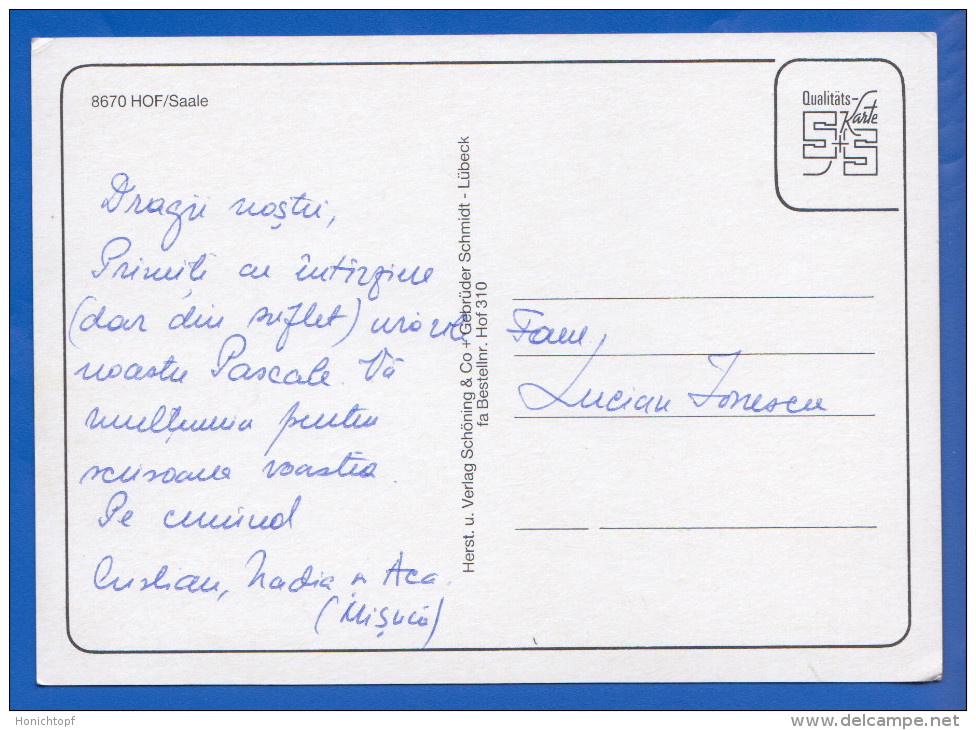 8670 HOF/Saale
Qualitäts-
Karte
S+S
Dragii noștri,
Primiți cu întîrziere
(dar din suflet) urările
noastre Pascale. Vă
mulțumim pentru
scrisoarea voastră.
Pe curând
Cristian, Nadia și Aca.
(Mișucă)
Herst. u. Verlag Schöning & Co + Gebrüder Schmidt - Lübeck
fa Bestellnr. Hof 310
Fam.
Lucian Ionescu
Honichtopf
www.delcampe.net